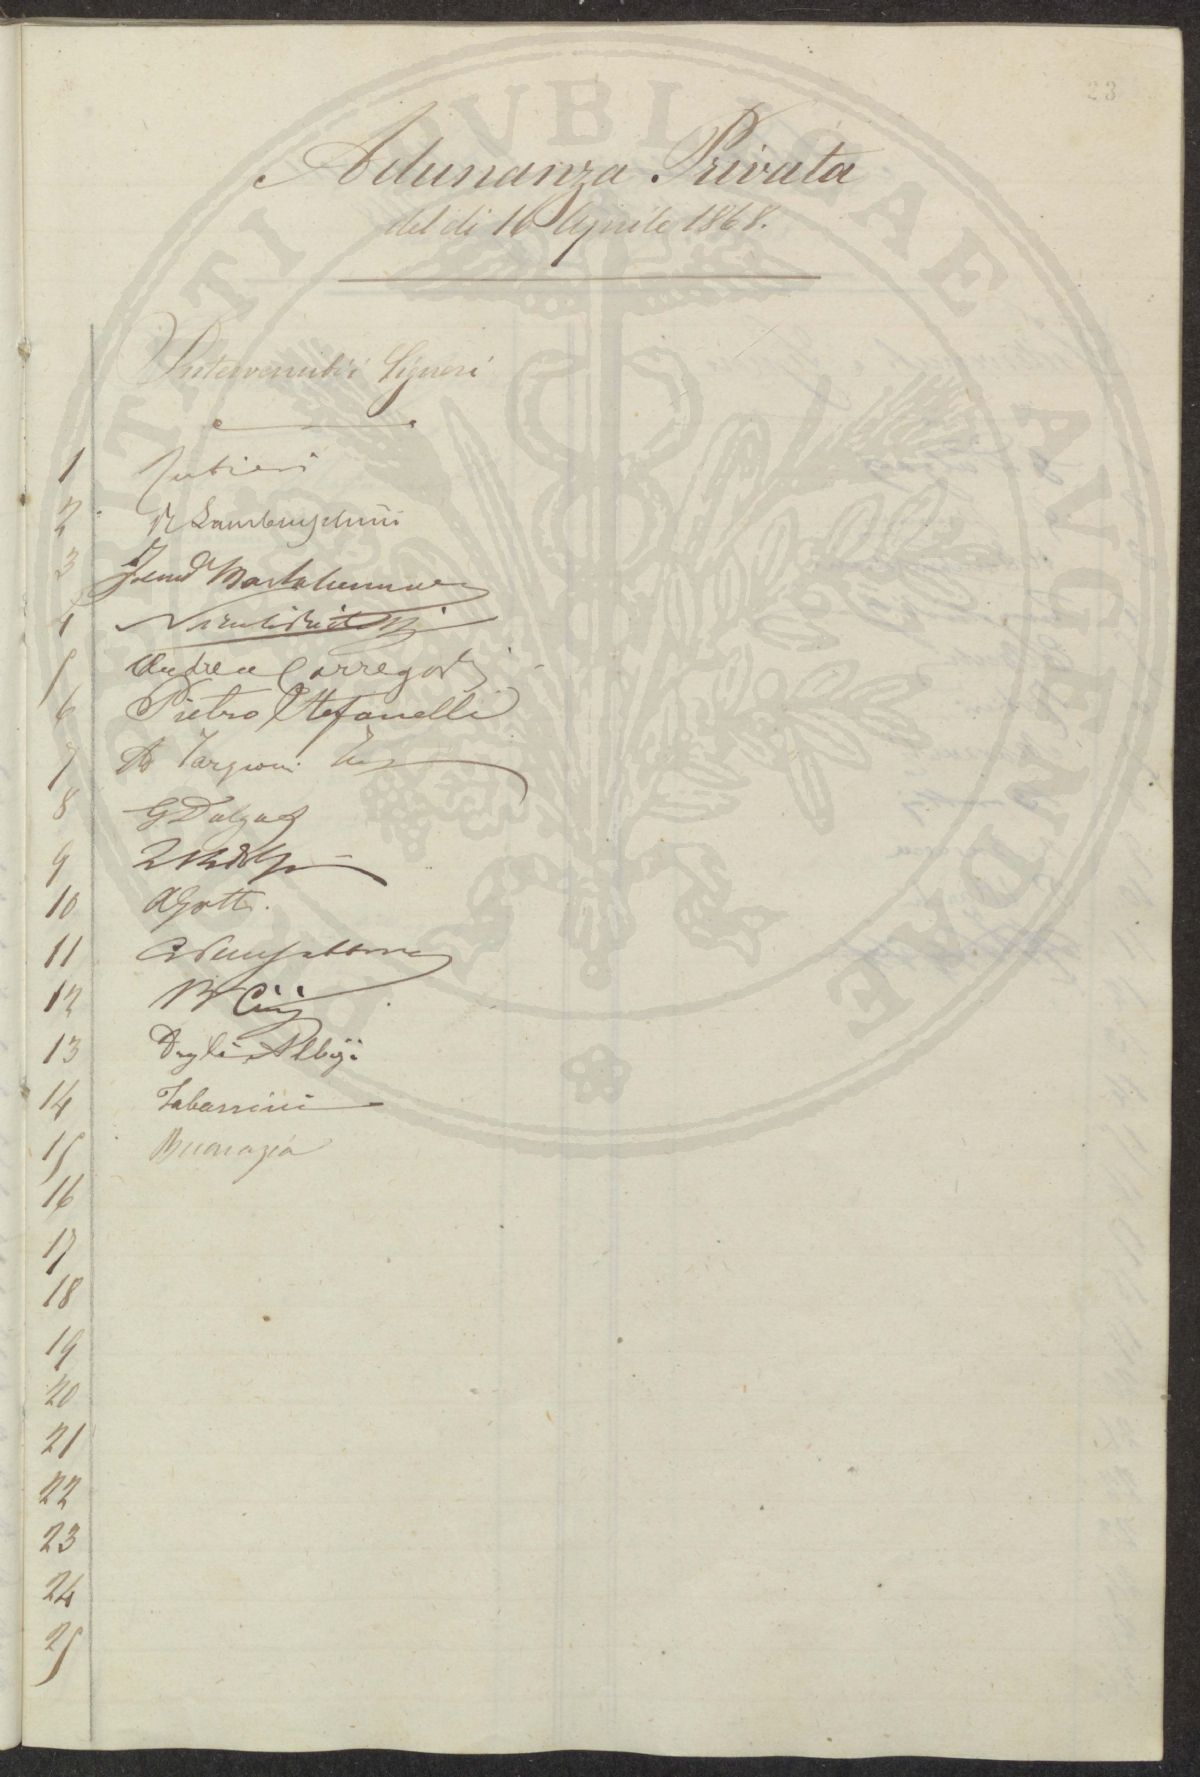 23
Adunanza Privata
del dì 16 Aprile 1868.
Intervenuti i Signori
1
2 R Lambruschini
3
4
5 Andrea Carregari
6 Pietro Stefanelli
7 Ad Targioni
8 G Dalgas
9 L Ridolfi
10 AGotti.
11
12 B Cini
13 Degli Albizi
14 Tabarrini
15 Buonazia
16
17
18
19
20
21
22
23
24
25
PROSPERITATI PVBLICAE AVGENDAE